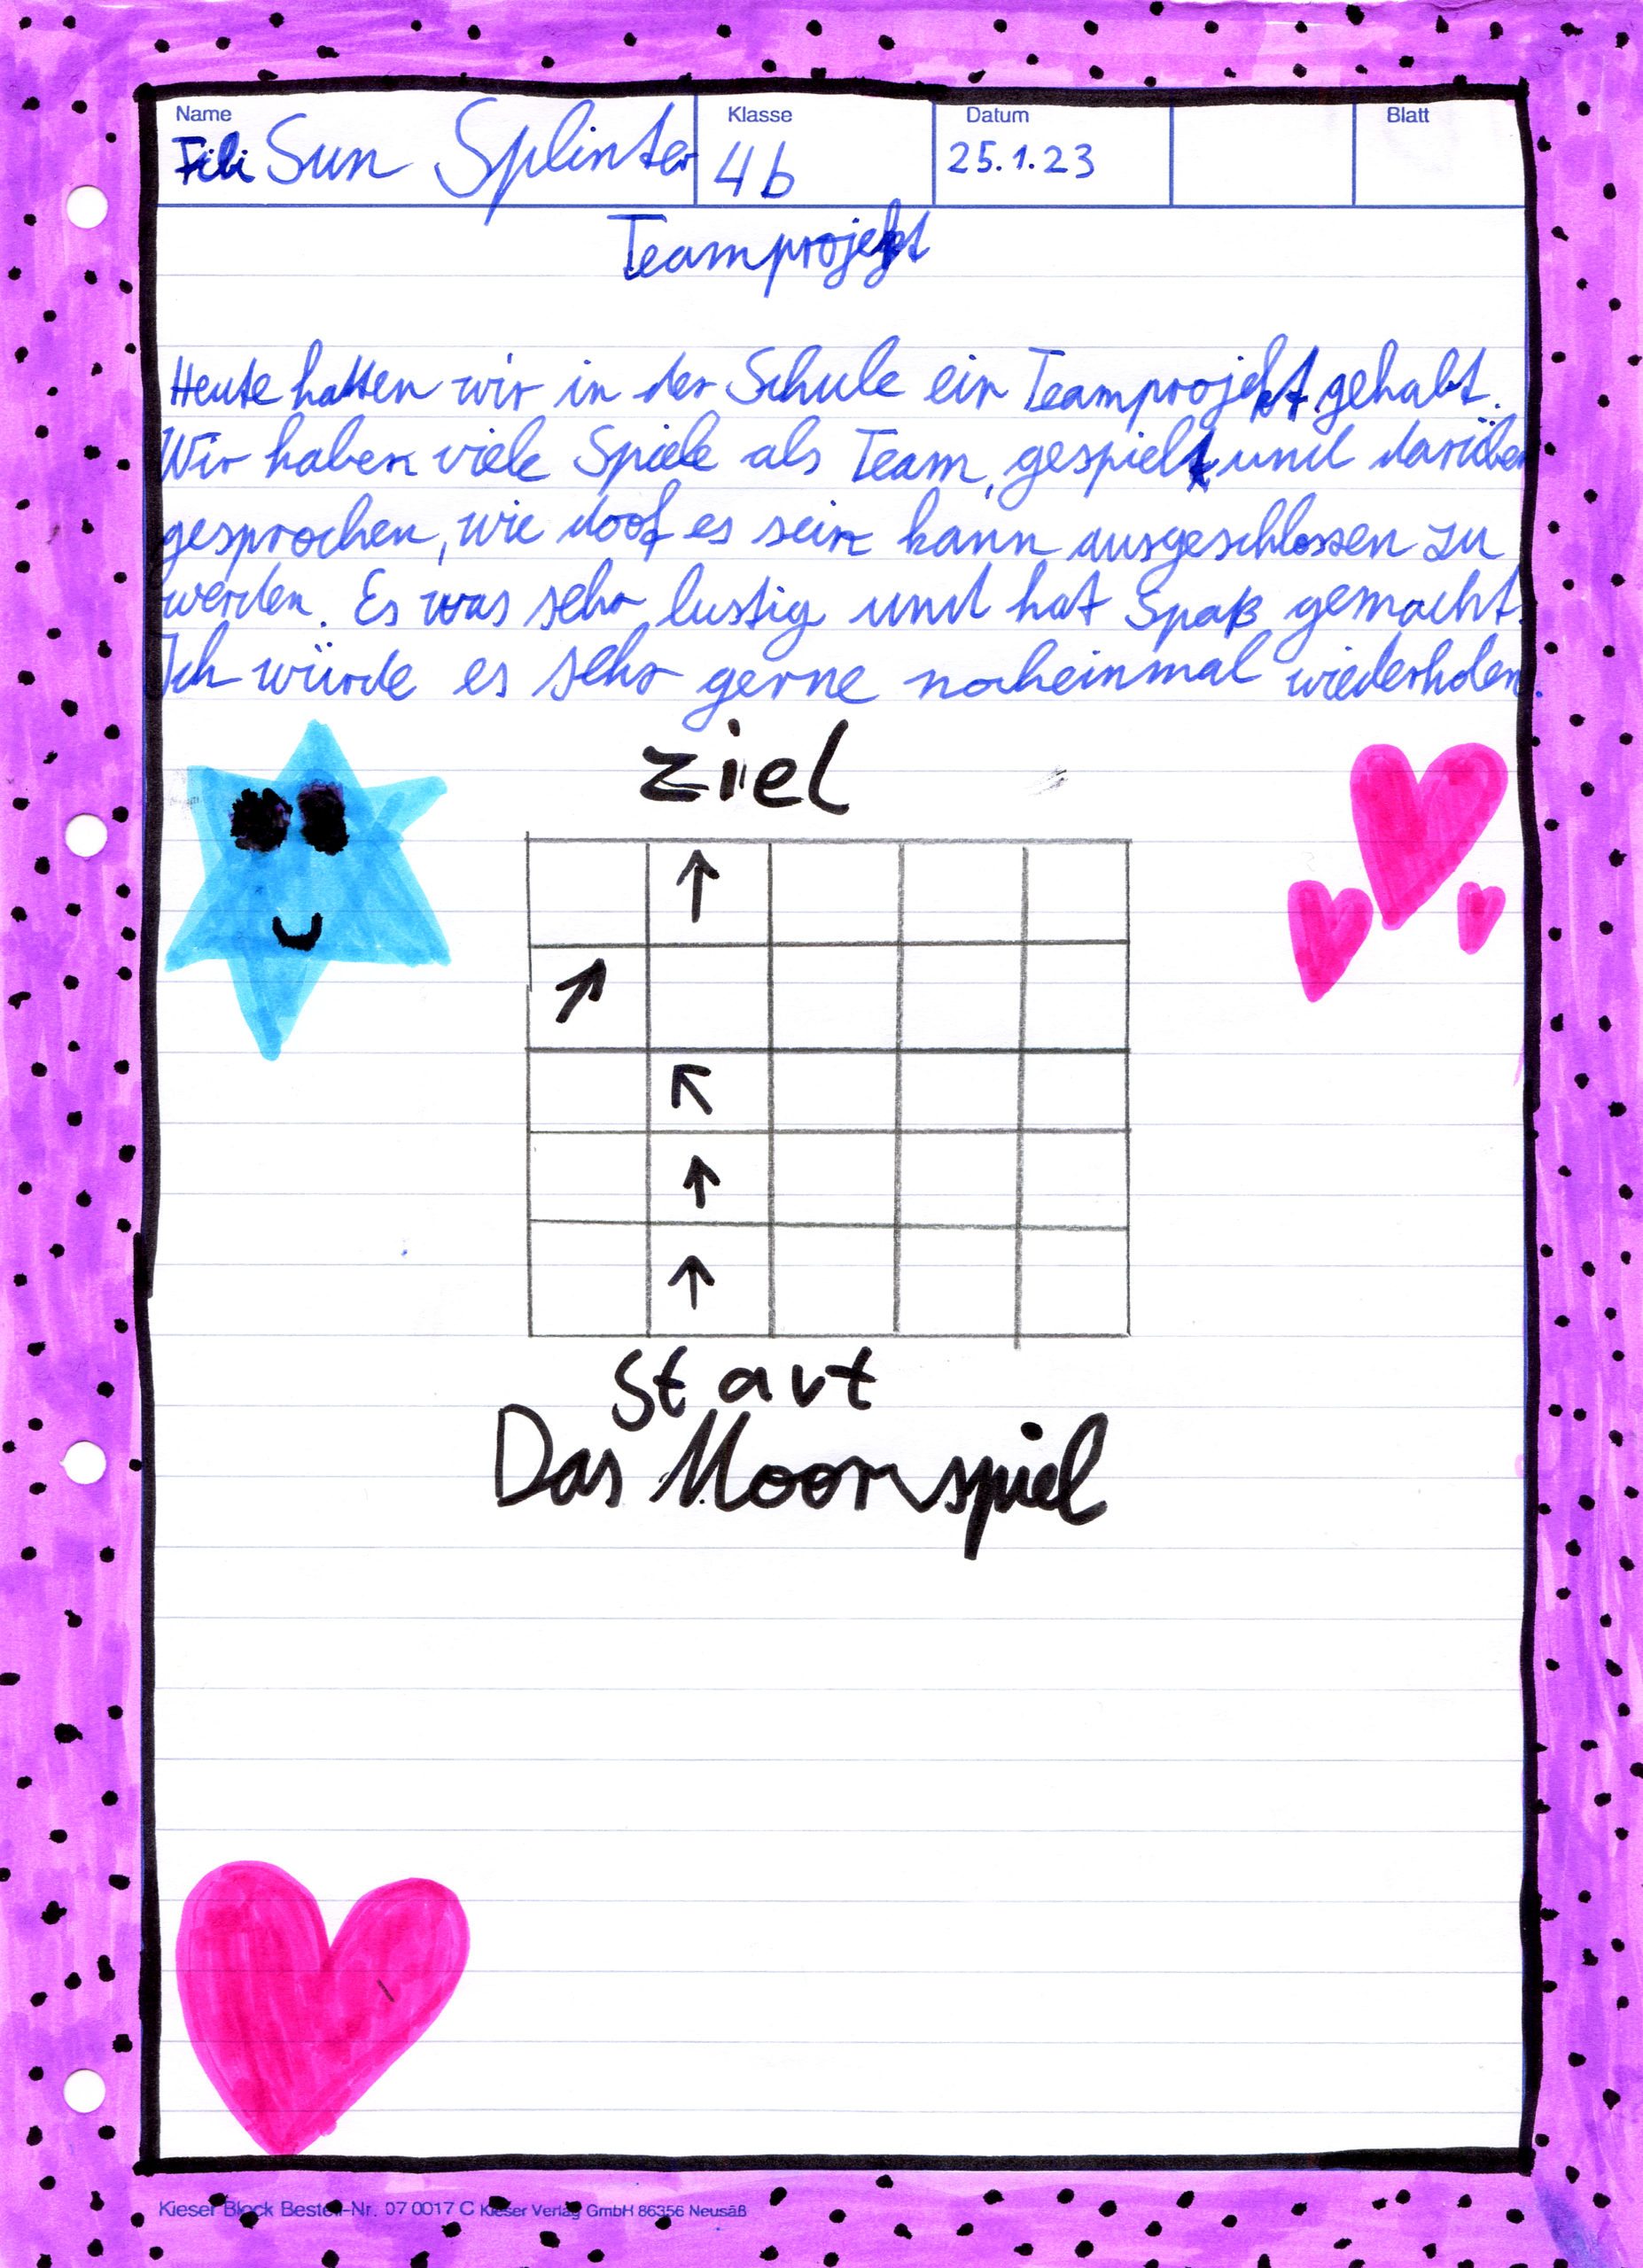 Name Klasse Datum Blatt
Fili Sun Splinter 4b 25.1.23
Teamprojekt
Heute hatten wir in der Schule ein Teamprojekt gehabt.
Wir haben viele Spiele als Team, gespielt und darüber
gesprochen, wie doof es sein kann ausgeschlossen zu
werden. Es was sehr lustig und hat Spaß gemacht.
Ich würde es sehr gerne nocheinmal wiederholen.
Ziel
Start
Das Moorspiel
Kieser Block Bestell-Nr. 07 0017 C Kieser Verlag GmbH 86356 Neusäß